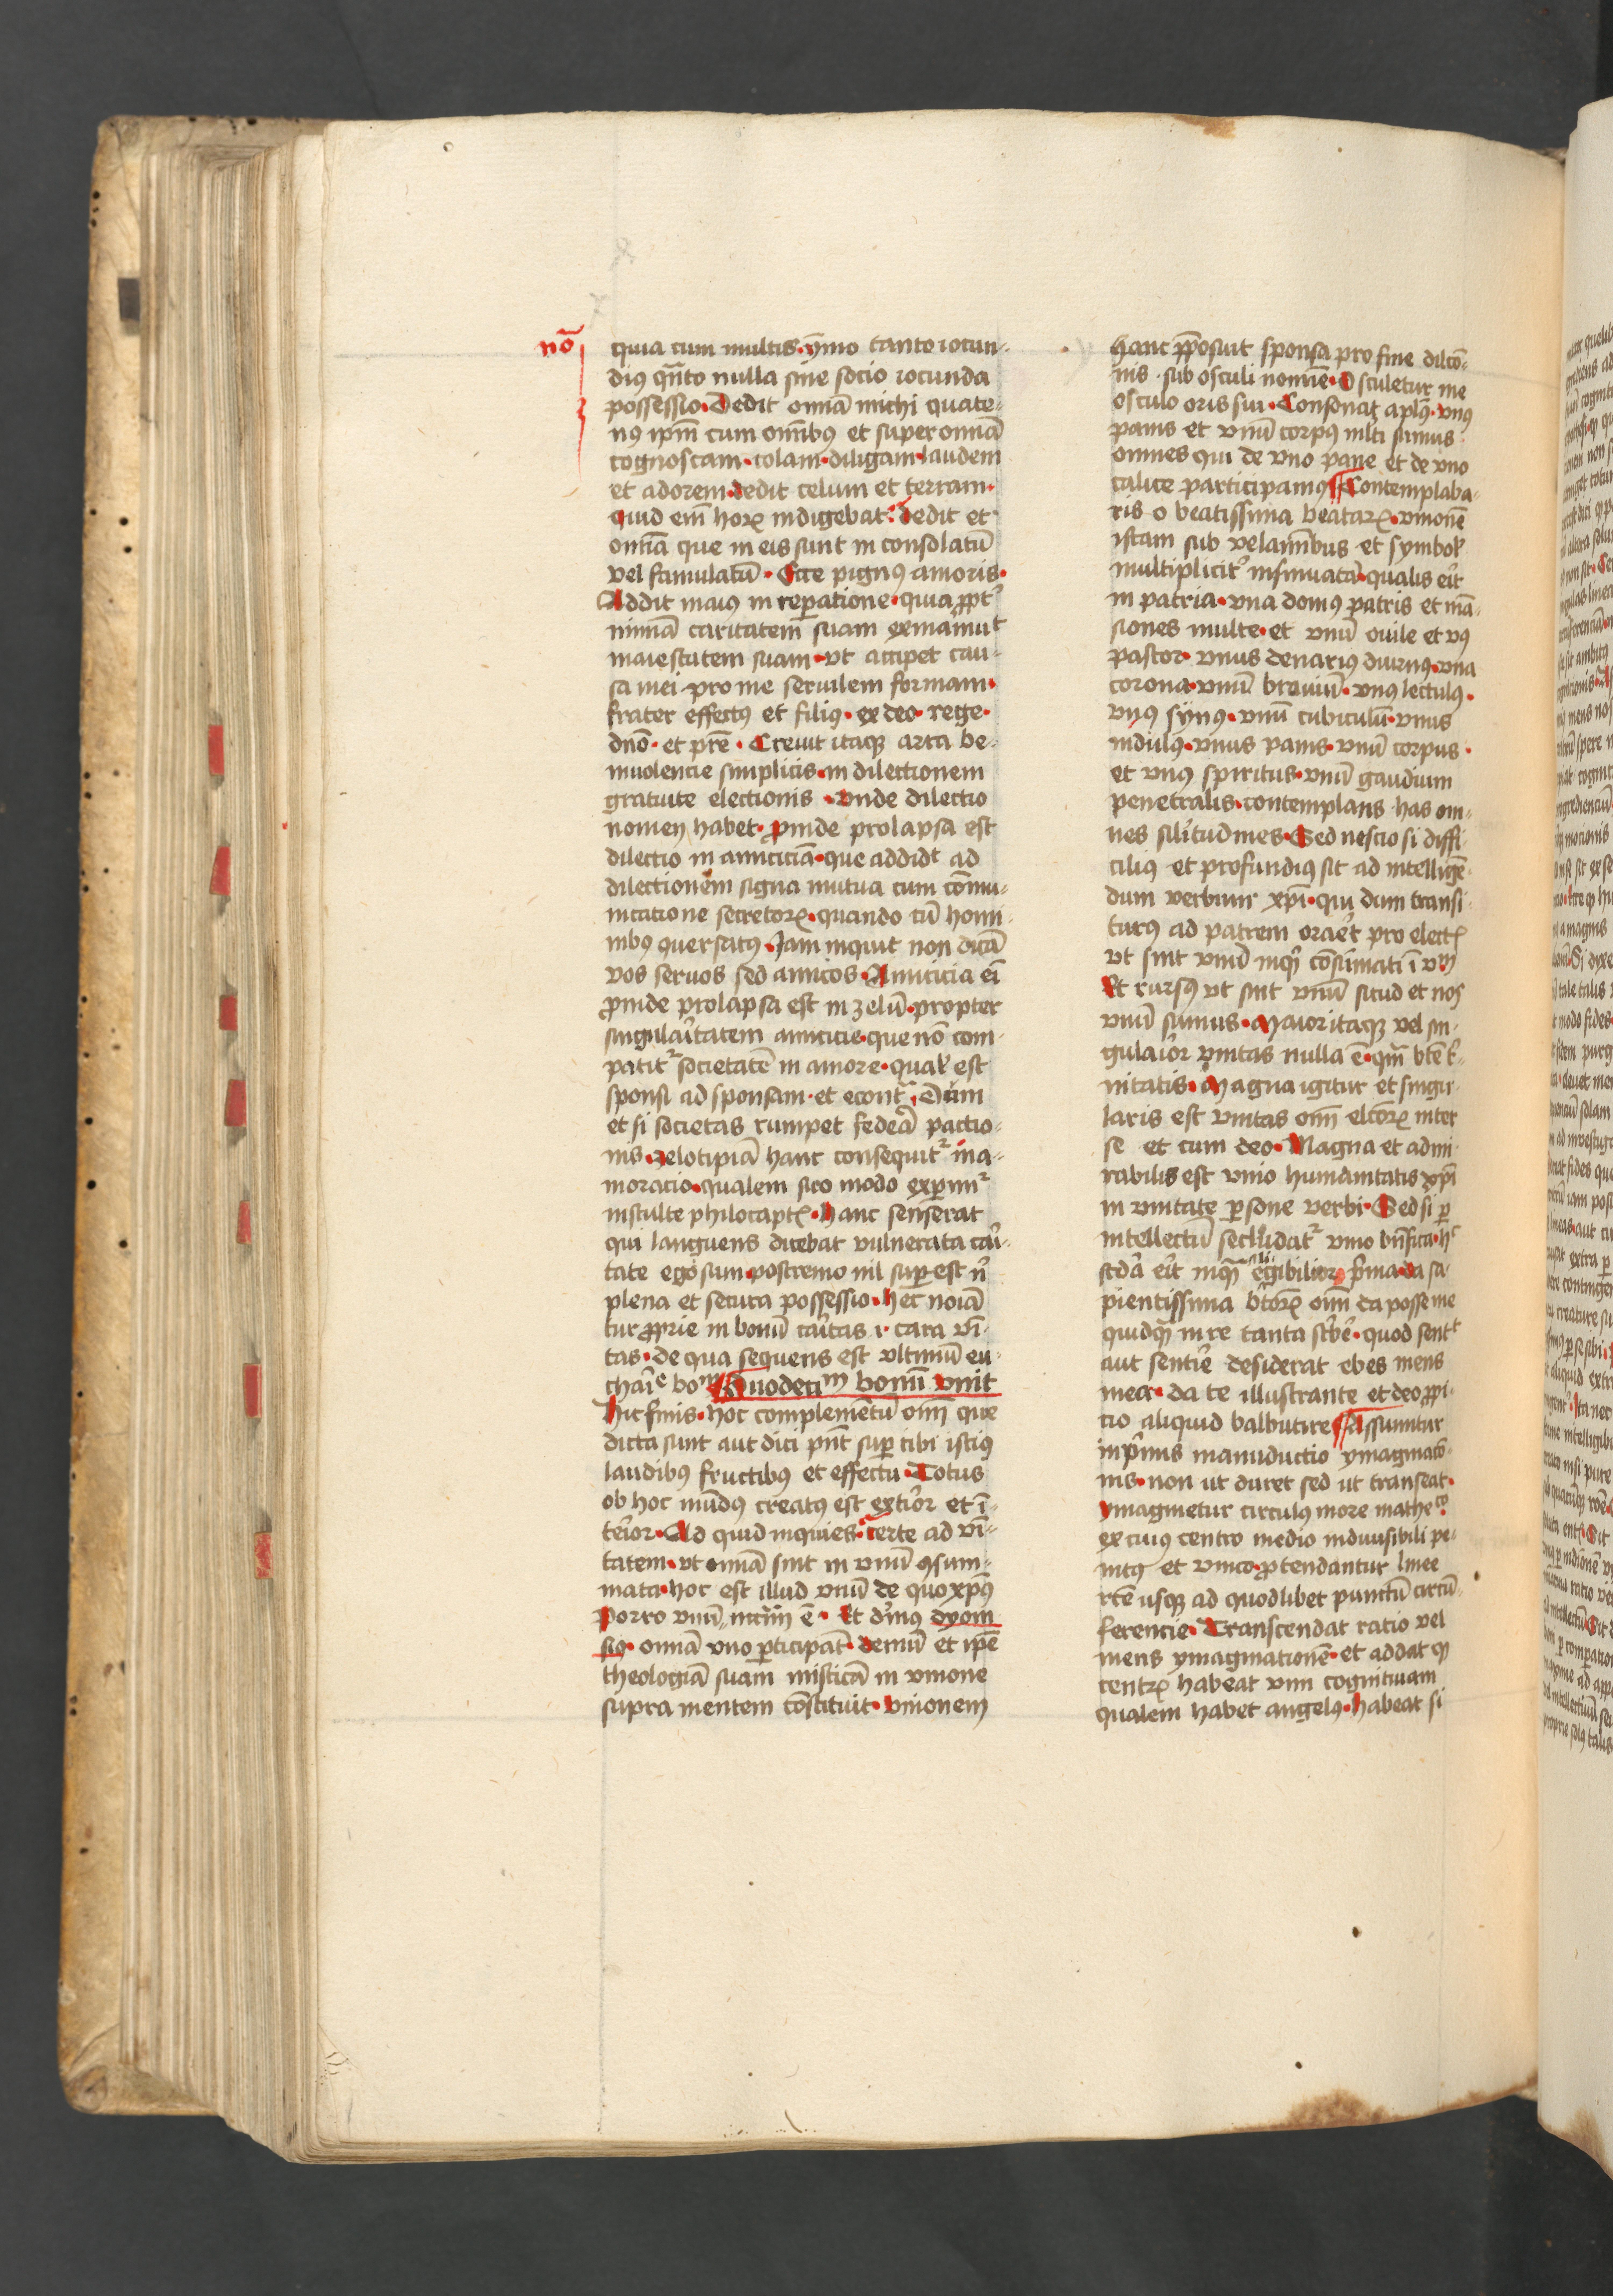 nō
quia cum multis · ymo tanto iocun-
diꝰ qn̄to nulla sine socio iocunda
possessio · Dedit omīa michi quate-
nꝰ ip̄m cum om̄ibꝰ et super omīa
cognoscam · colam · diligam · laudem
et adorem · dedit celum et terram ·
quid em̄ hoꝝ indigebat · dedit et
omīa que in eis sunt in consolatū
vel famulatū · Ecce pignꝰ amoris ·
Addit maiꝰ in reꝑatione · quia ꝓpt᷒
nimiā caritatem suam exinaniuᵗ
maiestatem suam · vt acciꝑet cau-
sa mei pro me seruilem formam ·
frater effectꝰ et filiꝰ · ex deo · rege ·
dn̄o · et pr̄e · Creuit itaqꝫ arta be-
niuolencie simplicis · in dilectionem
gratuite electionis · vnde dilectio
nomen habet · ꝓinde prolapsa est
dilectio in amiciciā · que addidᵗ ad
dilectionem signa mutua cum cōmu-
nicatione secretoꝝ · quando cū homi-
nibꝰ ꝯuersatꝰ · Jam inquit non dicā
vos seruos sed amicos · Amicicia ei᷒
ꝓinde prolapsa est in zelū · propter
singulaītatem amicicie · que nō com-
patitᷣ societatē in amore · qual᷒ est
sponsi ad sponsam · et econtᵃ · Dum
et si societas rumpet federa pactio-
nis · zelotipiā hanc consequitᷣ ina-
moracio · qualem suo modo experimᷣ
in stulte philocaptꝭ · hanc senserat
qui languens dicebat vulnerata caī-
tate ego sum · postremo nil suꝑest n᷒
plena et secura possessio · hec noīā
tur ꝓprie in bonū caītas · i · cara vī-
tas · de qua sequens est vltimū eu-
chaīᵉ boᵐ Duodeciᵐ bonū vnit
hic finis · hoc complemētū om̄ que
dicta sunt aut dici pn̄t suꝑ cibi istiꝰ
laudibꝰ fructibꝰ et effectu · Totus
ob hoc mūdꝰ creatꝰ est exteīor et ī-
teīor · Ad quid inquies · certe ad vī-
tatem · vt omīa sint in vnū ꝯsum-
mata · hoc est illud vnū de quo xp̄ꝰ
Porro vnū nccīm ē · Et diuꝰ dyoni
siꝰ · omīa vno ꝑticipāt · demū et ip̄e
theologiā suam misticā in vnione
supra mentem cōstituit · vnionem
hanc ꝓposuit sponsa pro fine dilcō-
nis · sub osculi nomīe · Osculetur me
osculo oris sui · Consonat apl̄ꝰ · vnꝰ
panis et vnū corpꝰ mlti sumus
omnes qui de vno pane et de vno
calice participamꝰ Contemplaba-
ris o beatissima beataꝝ · vnionē
istam sub velaminibus et symbol᷒
multiplicit᷒ insinuatā · qualis eīt
in patria · vna domꝰ patris et mā-
siones multe · et vnū ouile et vꝰ
pastor · vnus denariꝰ diurnꝰ · vna
corona · vnū brauiū · vnꝰ lectulꝰ ·
vnꝰ synꝰ · vnū cubiculū · vnus
nidulꝰ · vnus panis · vnū corpus ·
et vnꝰ spiritus · vnū gaudium
penetralis · contemplans has om-
nes silītudines · Sed nescio si diffi-
ciliꝰ et profundiꝰ sit ad intelligē-
dum verbum xp̄i · qui dum transi-
turꝰ ad patrem oraēt pro electꝭ
vt sint vnū inqͥ cōsumati ī vᵐ
Et rursꝰ vt sint vnū sicud et nos
vnū sumus · Maior itaqꝫ vel sin-
gulaīor vnitas nulla ē · qm̄ btē t᷒-
nitatis · Magna igitur et singu-
laris est vnitas om̄ elcōꝝ inter
se et cum deo · Magna et admi-
rabilis est vnio humanitatis xp̄i
in vnitate ꝑsone verbi · Sed si ꝑ
intellectū secludatᷣ vnio bn̄fica · hᵉ
scdā eīt inqͣ elligibilior prima · da sa-
pientissima btoꝝ om̄ da posse me
quidqͣ in re tanta scībe · quod sentᵗ
aut sentīe desiderat ebes mens
mea · da te illustrante et deo ꝓpi-
cio aliquid balbutire Assumitur
inpͥmis manuductio ymaginacō-
nis · non ut duret sed ut transeat ·
ymaginetur circulus more matheᶜᵒ
ex cuius centro medio indiuisibili pe-
nitꝰ et vnico · ꝓtendantur linee
rcē usqꝫ ad quodlibet punctū circū-
ferencie · Transcendat ratio vel
mens ymaginationē · et addat ꝙ
centꝝ habeat vim cognitiuam
qualem habet angelꝰ · habeat si